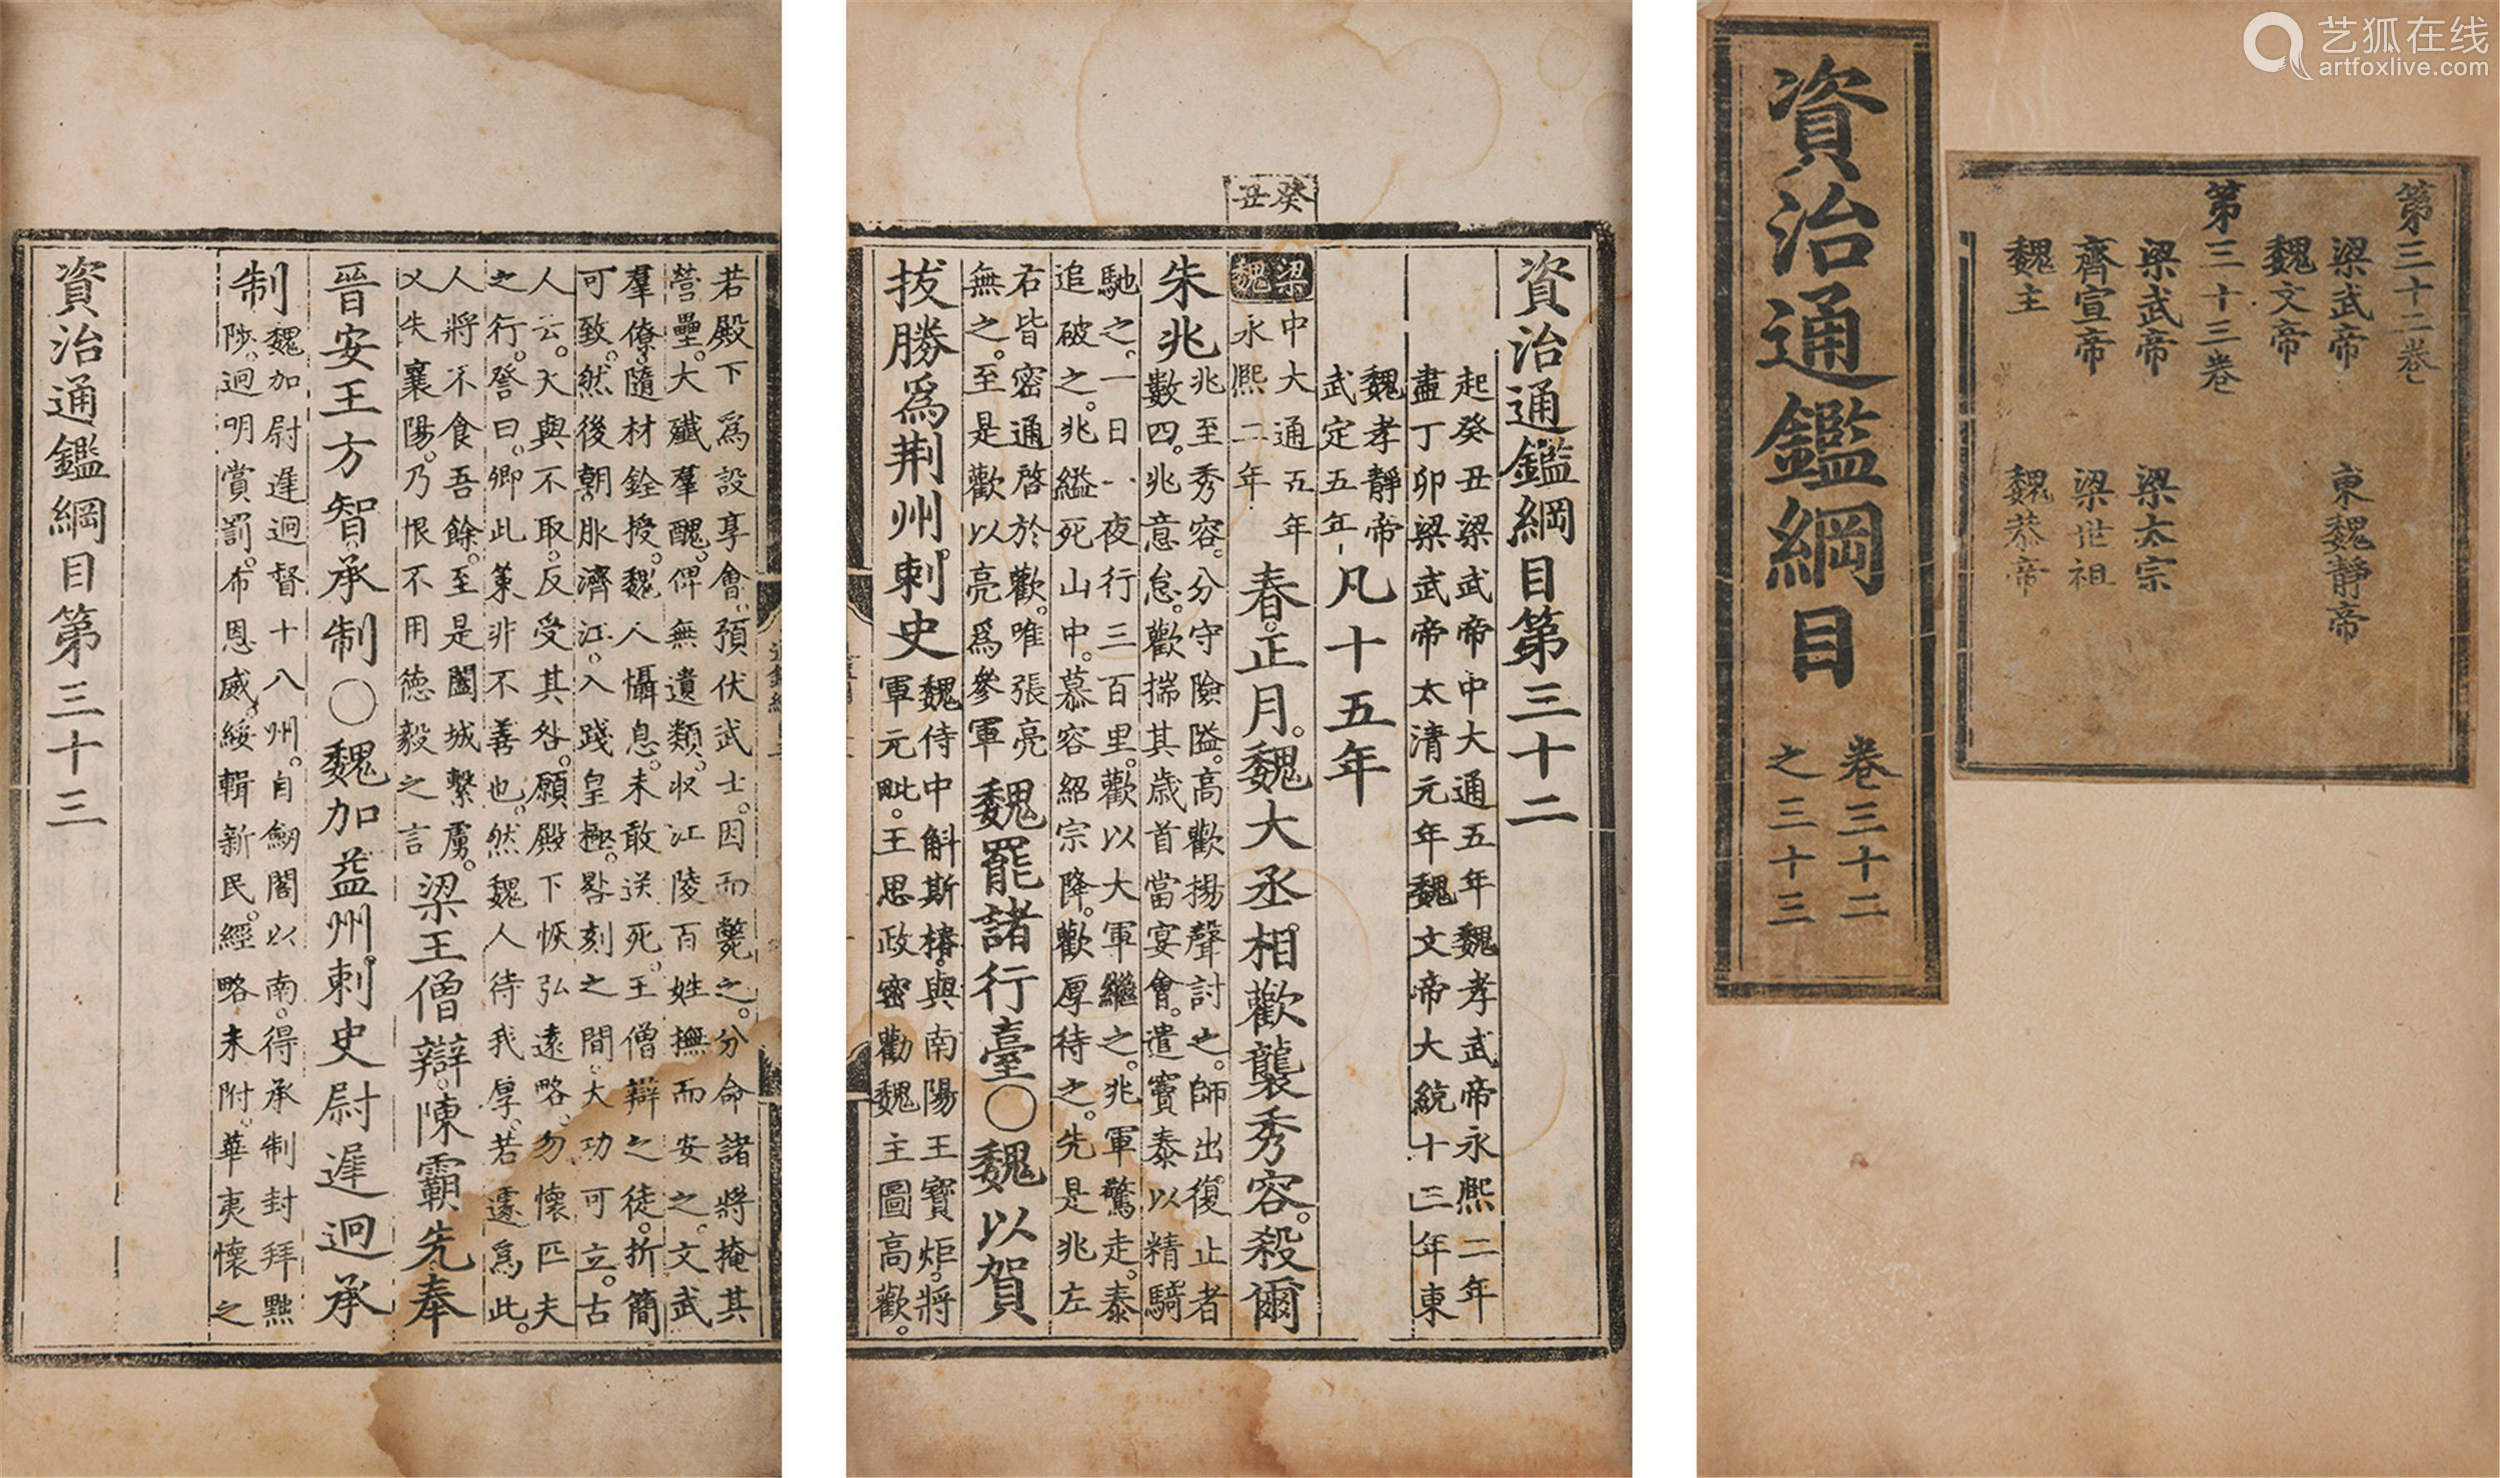 艺狐在线
artfoxlive.com
資治通鑑綱目
卷三十二
之三十三
第三十二卷
梁武帝 東魏靜帝
魏文帝
第三十三卷
梁武帝 梁太宗
齊宣帝 梁世祖
魏主 魏恭帝
癸丑
資治通鑑綱目第三十二
起癸丑梁武帝中大通五年魏孝武帝永熙二年
盡丁卯梁武帝太清元年魏文帝大統十三年東
魏孝靜帝
武定五年
凡十五年
梁 中大通五年
魏 永熙二年
春。正月。魏大丞相。歡襲秀容。殺爾
朱兆
兆至秀容。分守險隘。高歡揚聲討之。師出。復止者
數四。兆意怠。歡揣其歲首當宴會。遣竇泰以精騎
馳之。一日一夜行三百里。歡以大軍繼之。兆軍驚走。泰
追破之。兆縊死山中。慕容紹宗降。歡厚待之。先是兆左
右皆密通啓於歡。唯張亮
無之。至是歡以亮爲參軍
魏罷諸行臺○魏以賀
拔勝爲荆州刺史
魏侍中斛斯椿。與南陽王寶炬。將
軍元毗。王思政密勸魏主圖高歡。
若殿下爲設享會。預伏武士。因而斃之。分命諸將掩其
營壘。大殲羣醜。俾無遺類。收江陵百姓撫而安之。文武
羣僚。隨材銓授。魏人懾息。未敢送死。王僧辯之徒。折簡
可致。然後朝服濟江。入踐皇極。晷刻之間。大功可立。古
人云。天與不取。反受其咎。願殿下恢弘遠略。勿懷匹夫
之行。詧曰。卿此策非不善也。然魏人待我厚。若遽爲此。
人將不食吾餘。至是闔城繫虜。
乂失襄陽。乃恨不用德毅之言
梁王僧辯。陳霸先奉
晉安王方智。承制○魏加益州。刺史尉遲迥承
制
魏加尉遲迥督十八州。自劒閣以南。得承制封拜黜
陟。迥明賞罰。布恩威。綏輯新民。經略未附。華夷懷之
資治通鑑綱目第三十三